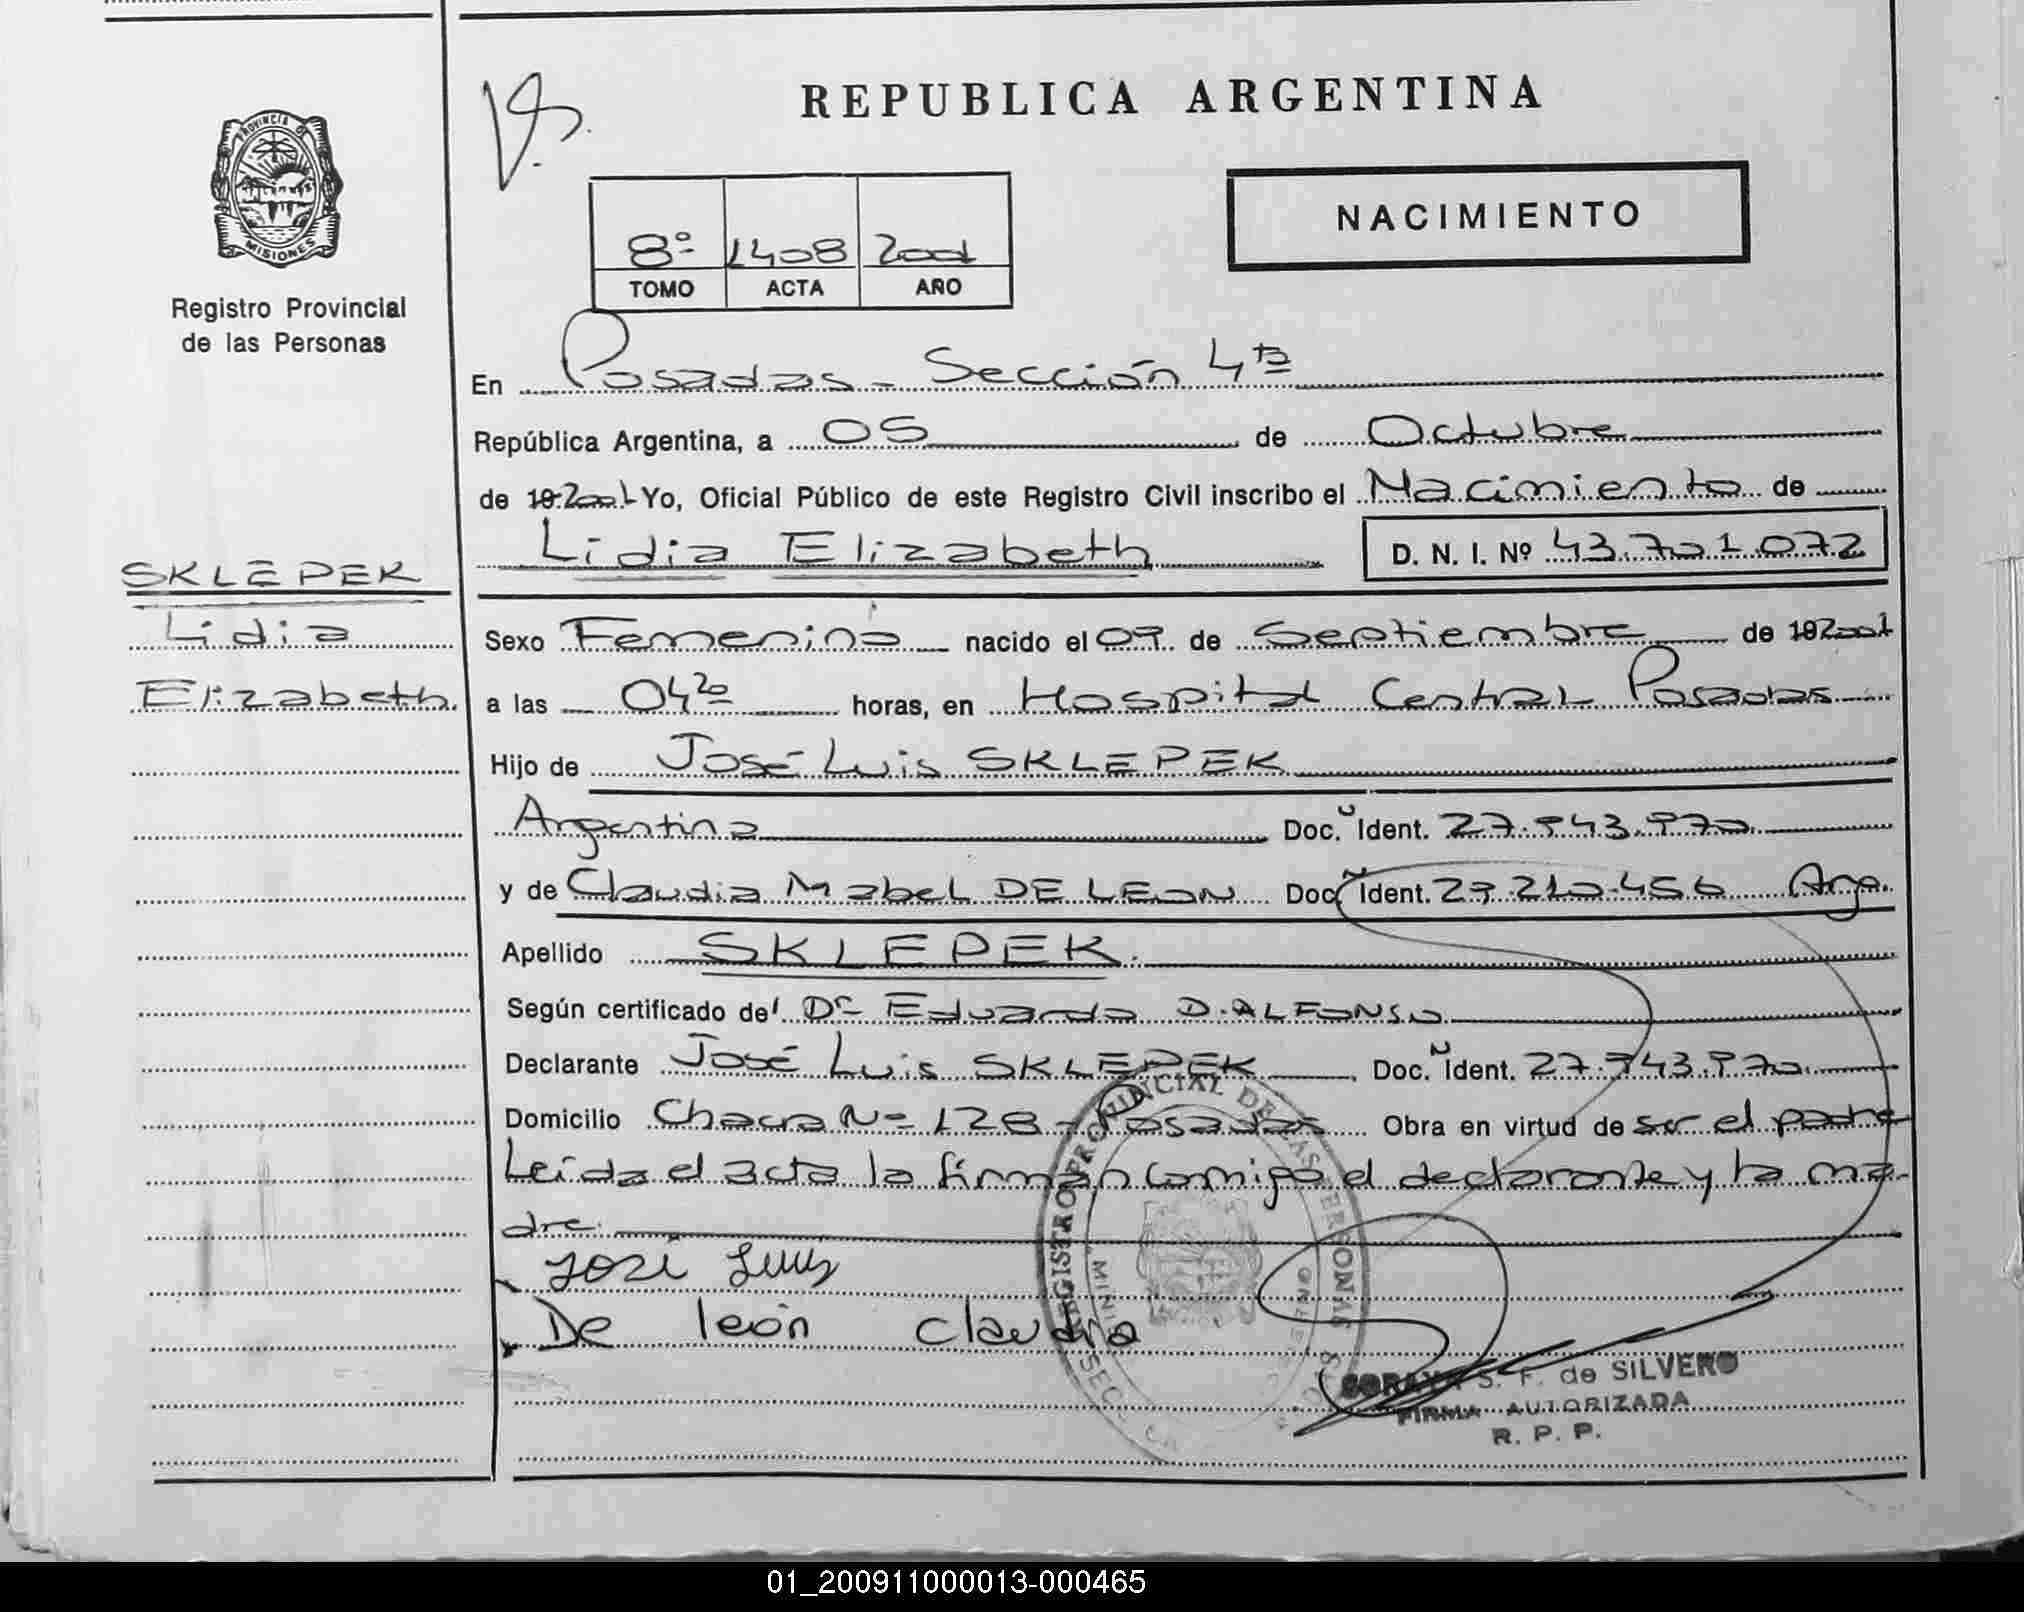 REPUBLICA ARGENTINA
PROVINCIA DE
MISIONES
Registro Provincial
de las Personas
8º 1408 2001
TOMO ACTA AÑO
NACIMIENTO
En Posadas - Sección 4ta
República Argentina, a 05 de Octubre
de 19 2001 Yo, Oficial Público de este Registro Civil inscribo el Nacimiento de
Lidia Elizabeth D. N. I. Nº 43.701.072
SKLEPEK
Lidia
Elizabeth
Sexo Femenino nacido el 09 de Septiembre de 19 2001
a las 04 20 horas, en Hospital Central Posadas
Hijo de José Luis SKLEPEK
Argentina Doc. Ident.
y de Claudia Mabel DE LEON Doc. Ident. Arg.
Apellido SKLEPEK.
Según certificado del Dr Eduardo D. ALFONSO
Declarante José Luis SKLEPEK Doc. Ident.
Domicilio Chacra Nº 128 - Posadas Obra en virtud de ser el padre
Leida el acta la firman conmigo el declarante y la ma-
dre.
José Luis
De león claudia
REGISTRO PROVINCIAL DE LAS PERSONAS
SORAYA S. F. de SILVERO
FIRMA AUTORIZADA
R. P. P.
01_200911000013-000465